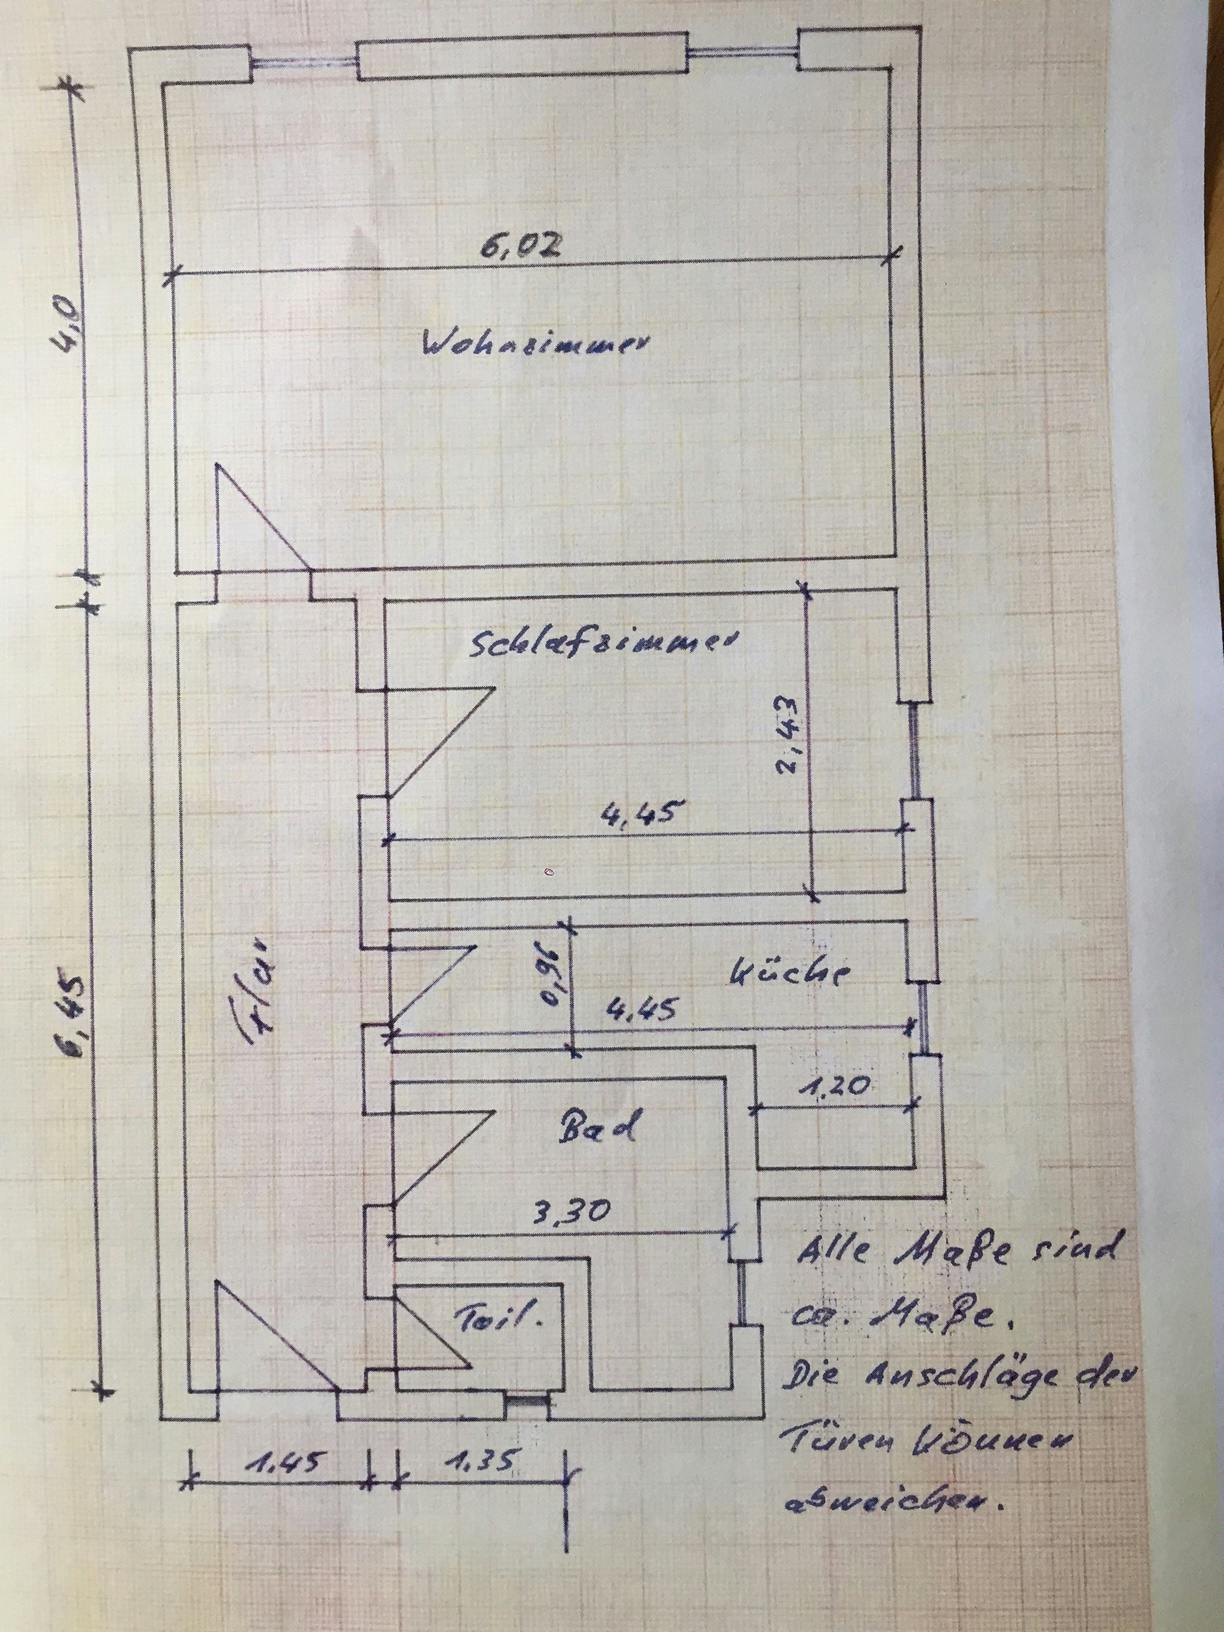 6,02
4,0
Wohnzimmer
Schlafzimmer
2,43
4,45
Flur
0,96
Küche
4.45
6,45
1.20
Bad
3,30
Toil.
Alle Maße sind
ca. Maße.
Die Anschläge der
Türen können
abweichen.
1.45
1.35